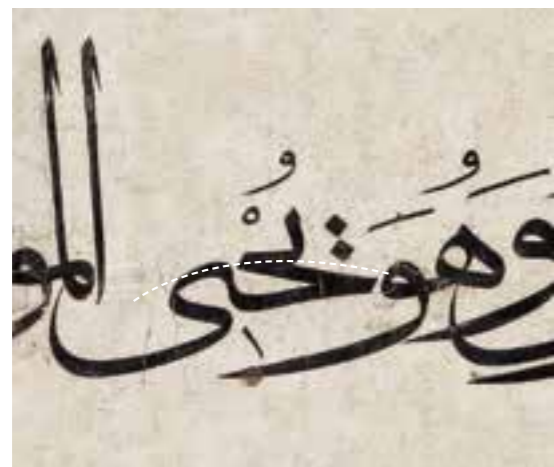 وَهُوَ يُحْىِ المو